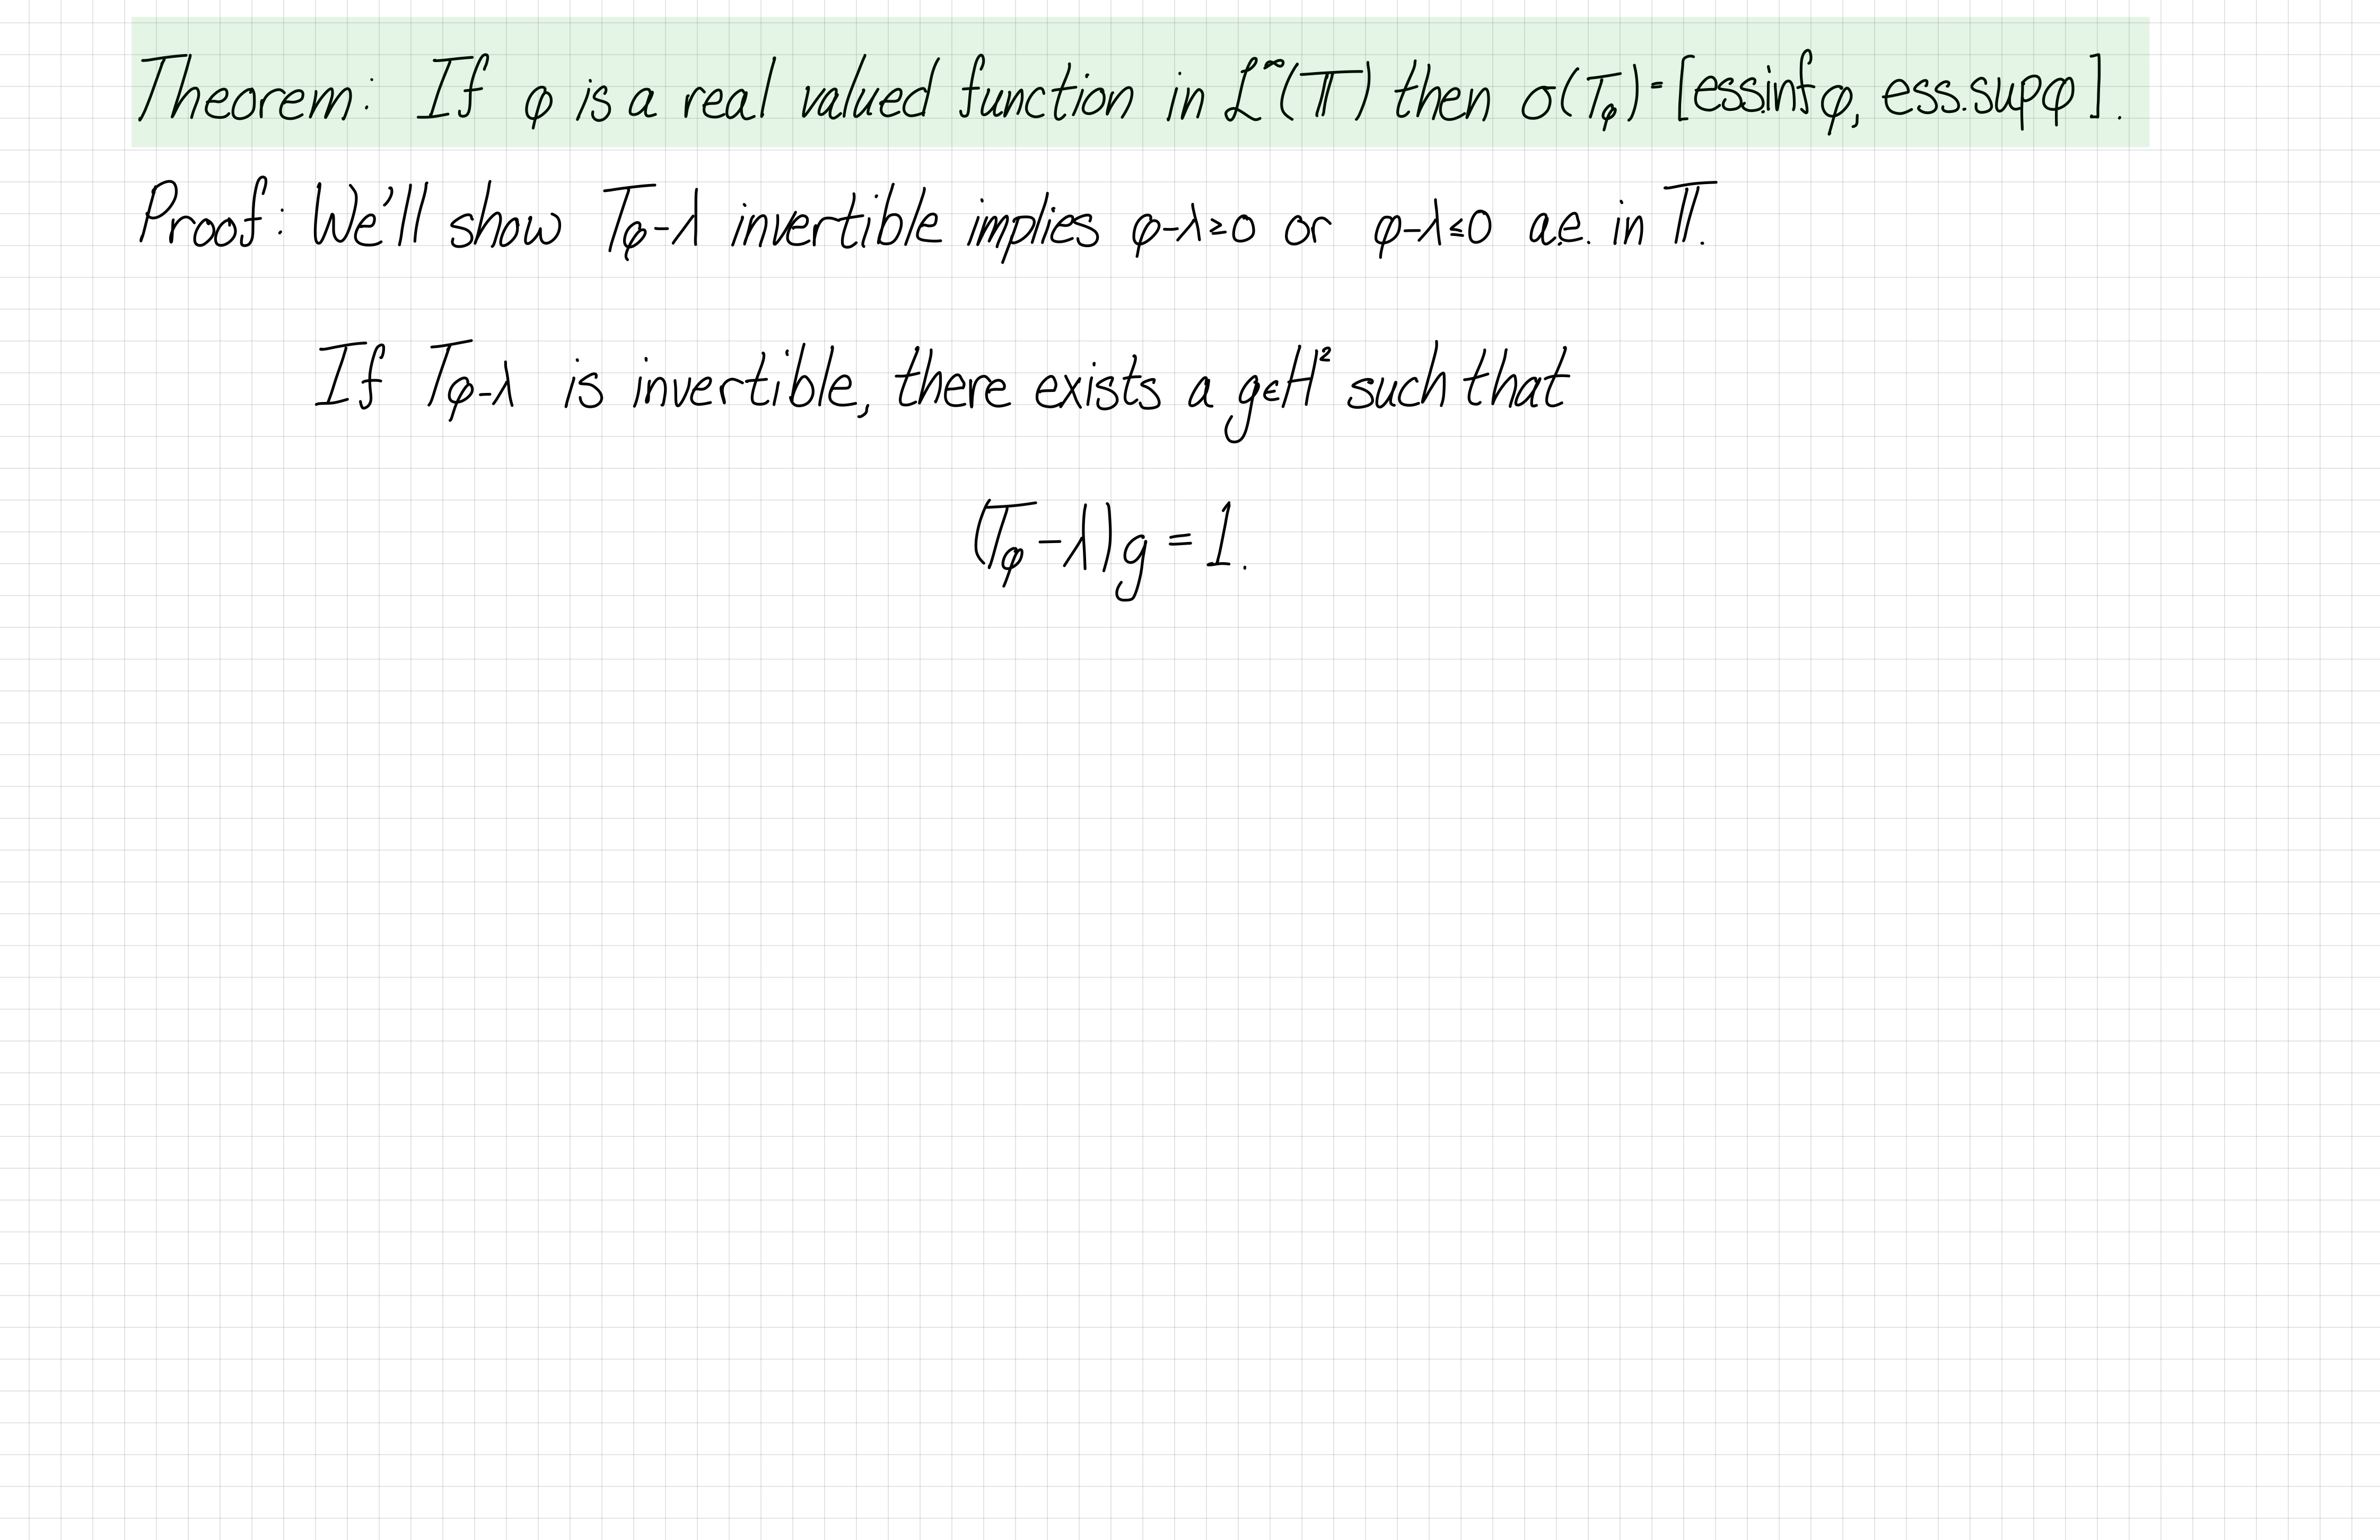 Theorem: If φ is a real valued function in L^∞(𝕋) then σ(T_φ)=[ess.inf φ, ess.sup φ].
Proof: We'll show T_φ-λ invertible implies φ-λ≥0 or φ-λ≤0 a.e. in 𝕋.
If T_φ-λ is invertible, there exists a g∈H² such that
(T_φ-λ)g = 1.